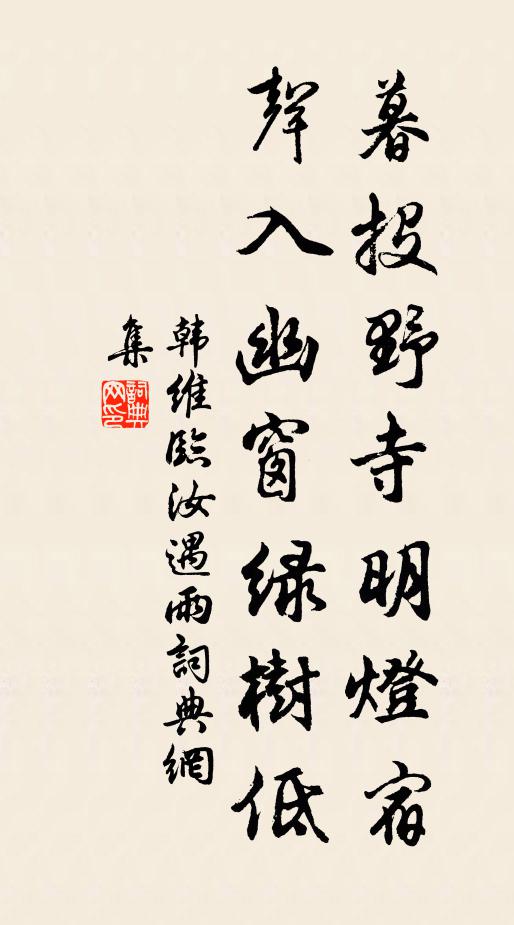 暮投野寺明燈宿
聲入幽窗绿樹低
韩維臨汝遇雨詞典網
集
詞典
网印